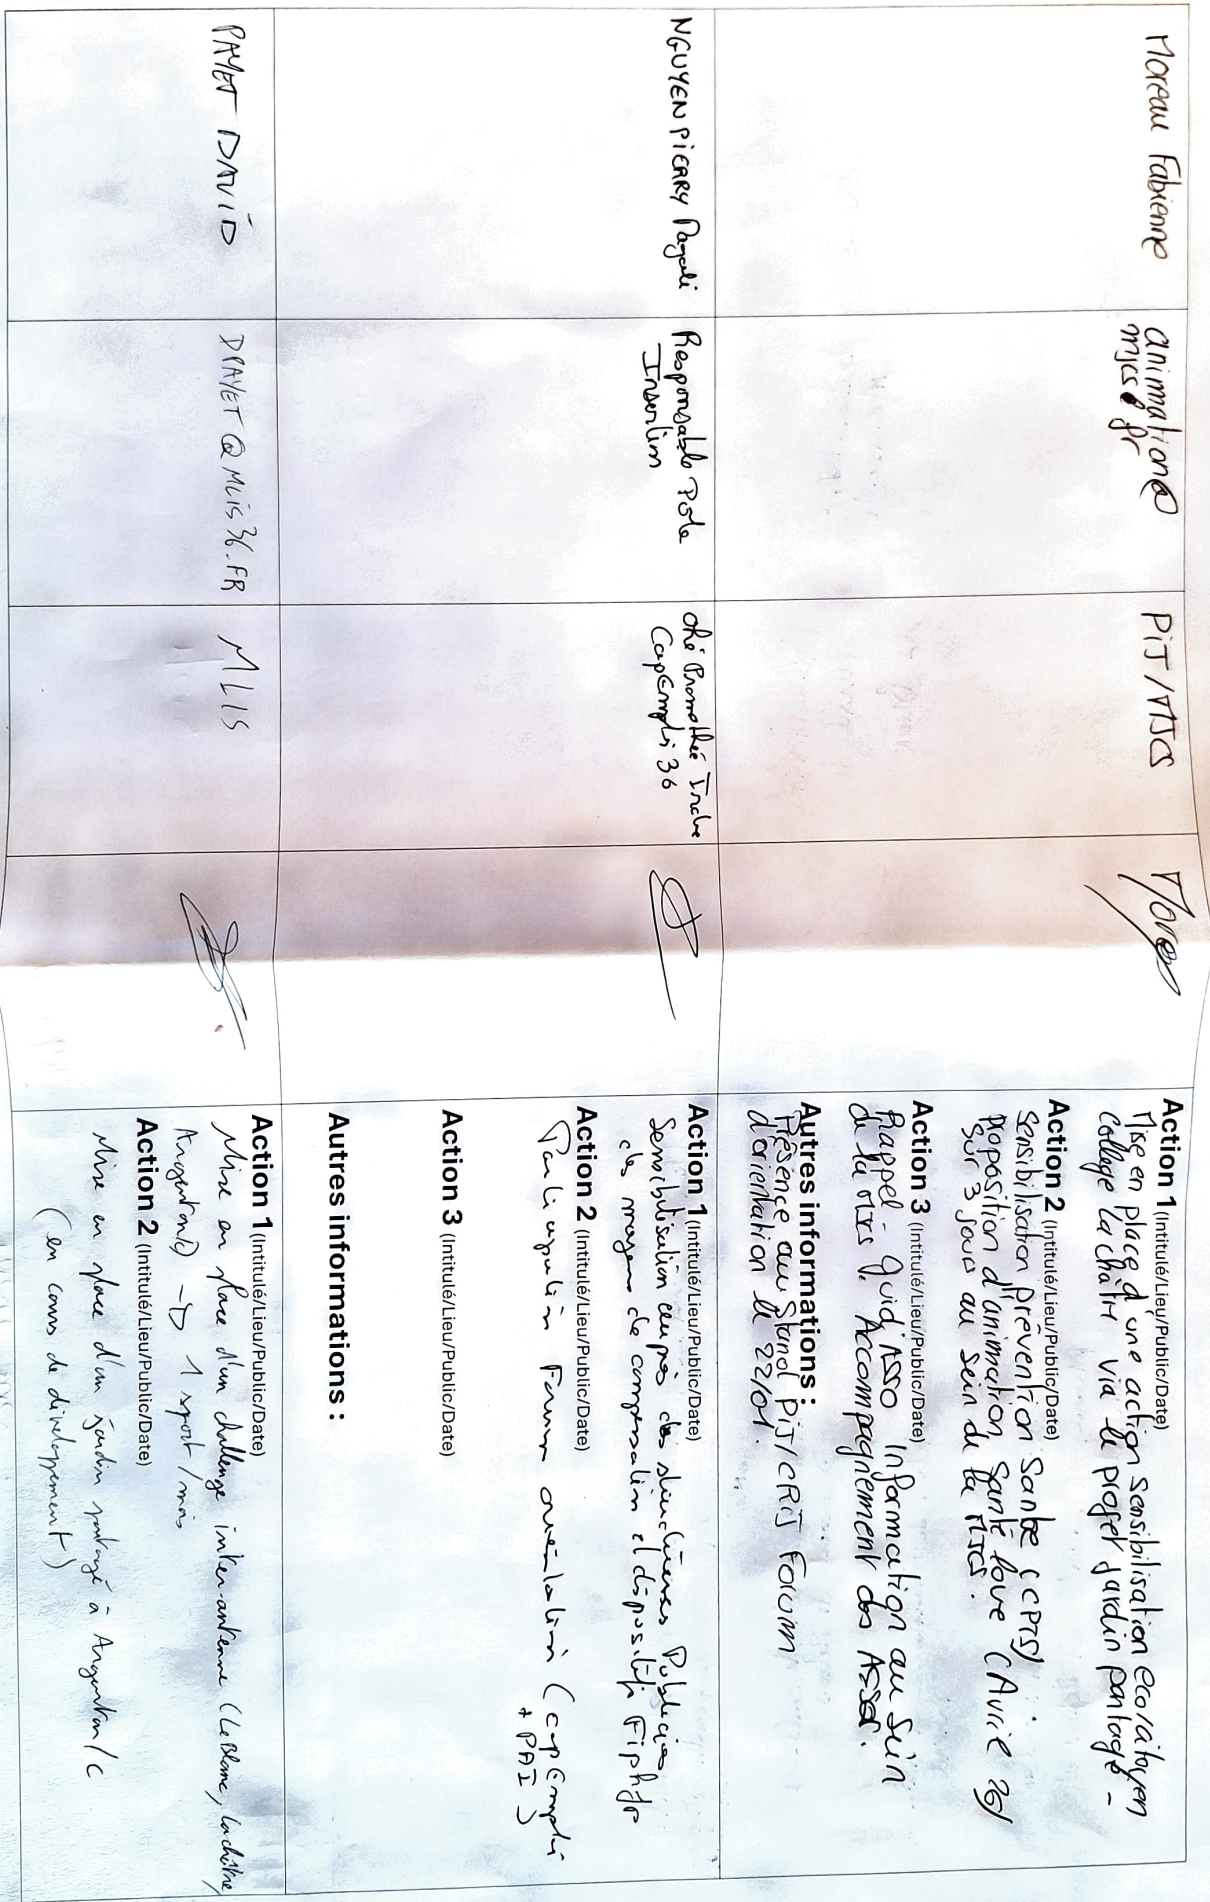 Moreau Fabienne
animation@
mjcs.fr
PiJ / MJCS
Action 1 (Intitulé/Lieu/Public/Date)
Mise en place d'une action Sensibilisation eco/citoyen
College La châtre via le projet jardin partagé -
Action 2 (Intitulé/Lieu/Public/Date)
Sensibilisation prévention Santé (CPTS)
Proposition d'animation Santé love (Avril 26)
Sur 3 jours au sein de la MJCS.
Action 3 (Intitulé/Lieu/Public/Date)
Rappel - Guid'ASSO Information au sein
de la MJCS. Accompagnement des Assos.
Autres informations :
Présence au Stand PiJ/CRIJ Forum
d'orientation le 22/01.
NGUYEN PIERRY Magali
Responsable Pôle
Insertion
ohé Prométhée Indre
CapEmploi 36
Action 1 (Intitulé/Lieu/Public/Date)
Sensibilisation auprès des structures Publiques
des moyens de compensation et dispositifs Fiphfp
Action 2 (Intitulé/Lieu/Public/Date)
Participation Forum orientation (capEmploi
+ PAI)
Action 3 (Intitulé/Lieu/Public/Date)
Autres informations :
PAYET DAVID
DPAYET@MLIS36.FR
MLIS
Action 1 (Intitulé/Lieu/Public/Date)
Mise en place d'un challenge inter-antenne (Le Blanc, La châtre,
Argenton/c) → 1 sport / mois
Action 2 (Intitulé/Lieu/Public/Date)
Mise en place d'un jardin partagé à Argenton/c
(en cours de développement)